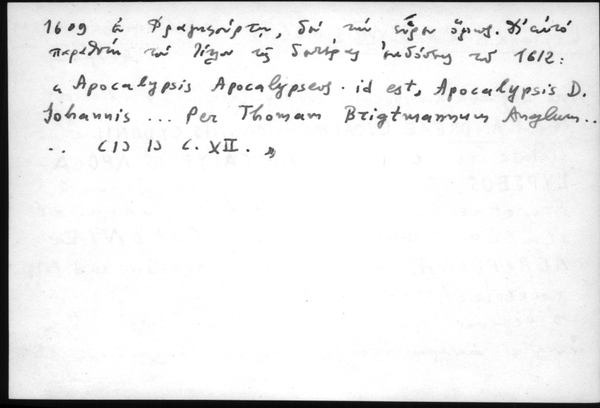 1609 ἐν Φραγκφούρτῃ, δὲν τὴν εὗρον ὅμως. Δι' αὐτὸ
παραθέτω τὸν τίτλον τῆς δευτέρας ἐκδόσεως τοῦ 1612:
« Apocalypsis Apocalypseos. id est, Apocalypsis D.
Johannis ... Per Thomam Brigtmannum Anglum..
.. CIƆ IƆ C. XII. »